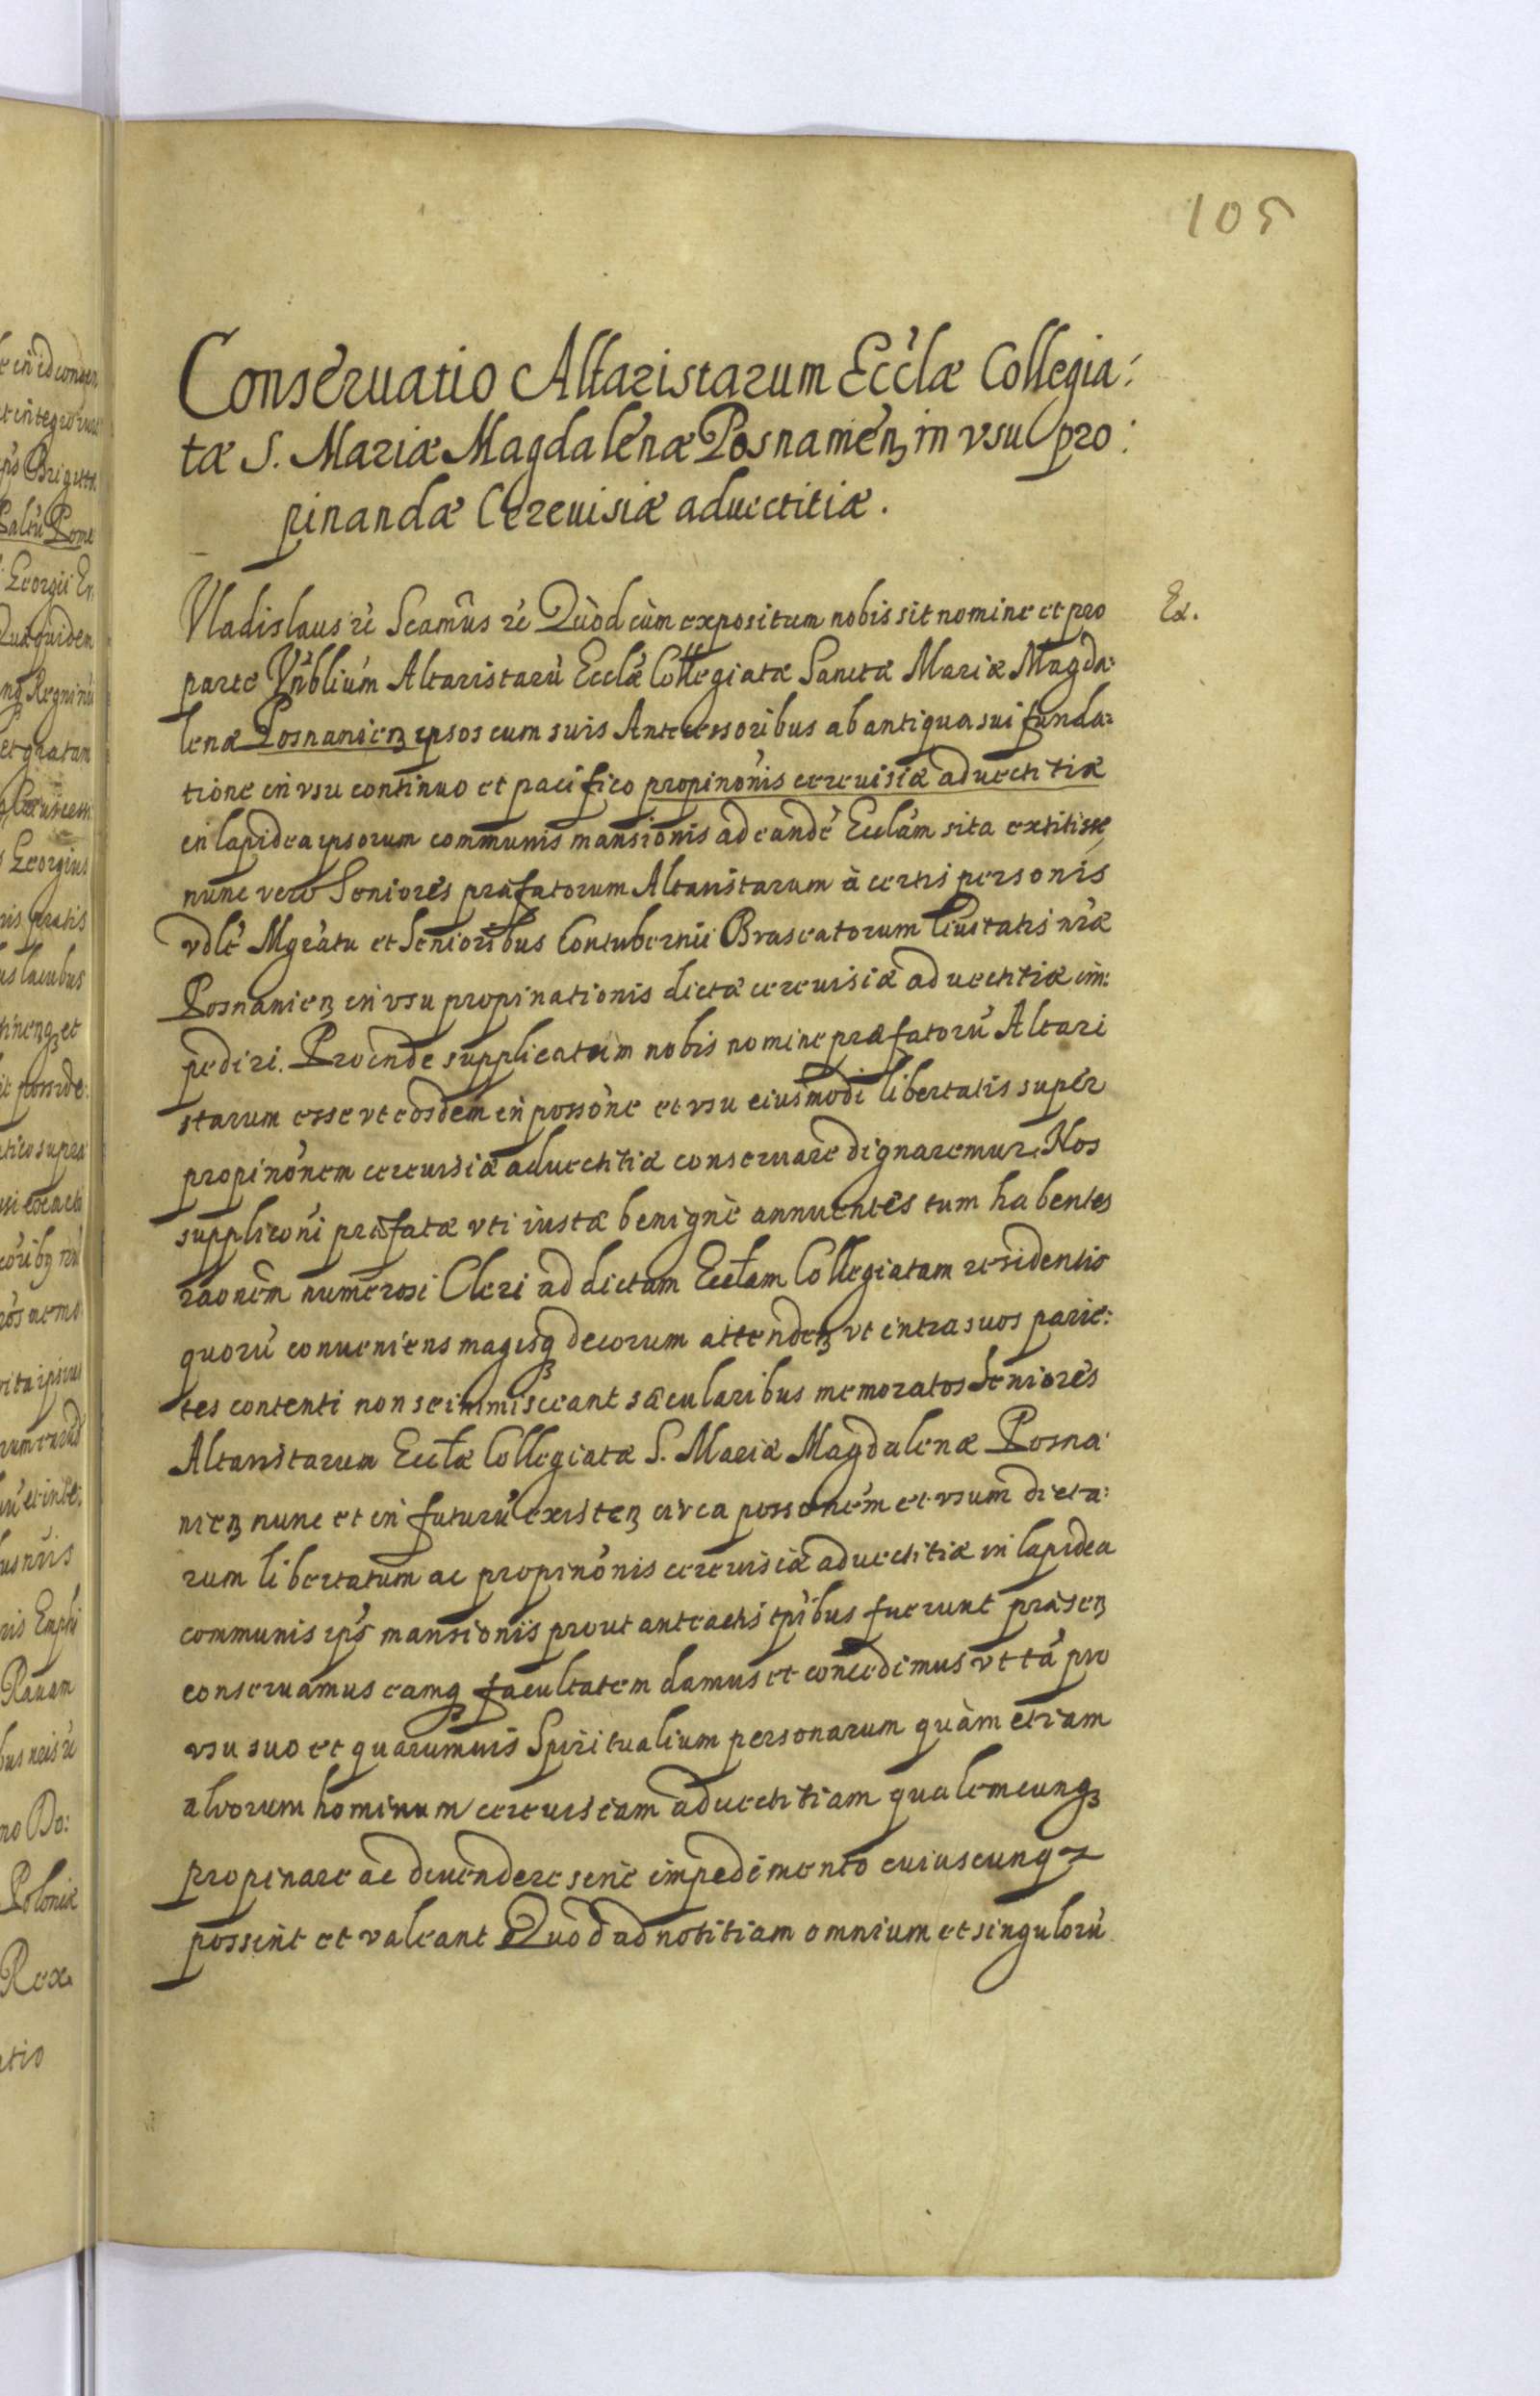 105
Conseruatio Altaristarum Ecclæ Collegia:
tæ S. Mariæ Magdalenæ Posnamen in vsu pro:
pinandæ Cereuisiæ aduectitiæ.
Vladislaus rc Scamus rc Quòd cùm expositum nobis sit nomine et pro
Ex.
parte Vnblium Altaristarū Ecclæ Collegiatæ Sanctæ Mariæ Magda:
lenæ Posnanien ipsos cum suis Antecessoribus ab antiqua sui funda:
tione in vsu continuo et pacifico propinonis cereuisiæ aduectitiæ
in lapidea ipsorum communis mansionis ad eandē Ecclam sita extitisse,
nunc vero Seniores præfatorum Altaristarum à certis personis
vdlt Mgratu et Senioribus Contubernii Braseatorum Ciuitatis nræ
Posnanien in vsu propinationis dictæ cereuisiæ aduectitiæ im:
pediri. Proinde supplicatum nobis nomine præfatorū Altari
starum esse vt eosdem in possone et vsu eiusmodi libertatis super
propinonem cereuisiæ aduectitiæ conseruare dignaremur. Nos
suppliconi præfatæ vti iustæ benignè annuentes tum habentes
raonem numerosi Cleri ad dictam Ecclam Collegiatam residentis
quorū conueniens magisq decorum attenden vt intra suos parie:
tes contenti non se immisceant sæcularibus memoratos Seniores
Altaristarum Ecclæ Collegiatæ S. Mariæ Magdalenæ Posna
nien nunc et in futurū existen circa possonem et vsum dicta:
rum libertatum ac propinonis cereuisiæ aduectitiæ in lapidea
communis ips mansionis prout anteactis tpibus fuerunt præsen
conseruamus eamq facultatem damus et concedimus vt tā pro
vsu suo et quarumuis Spiritualium personarum quàm etiam
aliorum hominum cereuisiam aduectitiam qualemcunq
propinare ac diuendere sine impedimento cuiuscunq
possint et valeant Quod ad notitiam omnium et singulorū